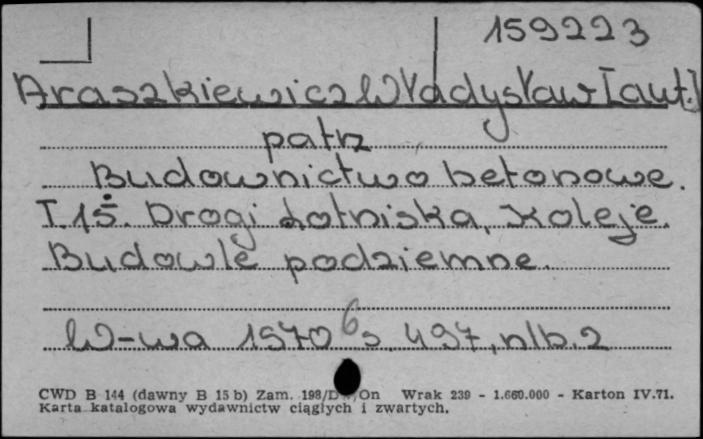 159223
Araszkiewicz Władysław [aut.]
patrz
Budownictwo betonowe.
T.15. Drogi Lotniska, Koleje.
Budowle podziemne.
W-wa 1970 6 s. 497, nlb. 2
CWD B 144 (dawny B 15 b) Zam. 198/D /On Wrak 239 - 1.660.000 - Karton IV.71.
Karta katalogowa wydawnictw ciągłych i zwartych.